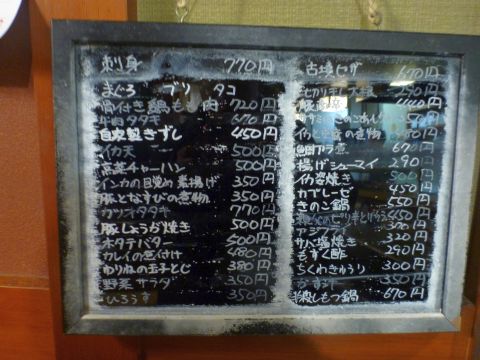 刺身 770円
まぐろ ブリ タコ
骨付き鶏もも肉 720円
牛肉タタキ 670円
自家製きずし 450円
イカ天 500円
高菜チャーハン 500円
インカの目覚め素揚げ 350円
豚となすびの煮物 350円
カツオタタキ 770円
豚しょうが焼き 500円
ホタテバター 500円
カレイの煮付け 480円
ゆりねの玉子とじ 380円
野菜サラダ 350円
ひろうす 350円
古墳ピザ 670円
290円
440円
煮物
アラ煮 670円
揚げシューマイ 290円
イカ姿焼き 500円
カプレーゼ 450円
きのこ鍋 550円
450円
アジフライ
サバ塩焼き 320円
もずく酢 320円
ちくわきゅうり 300円
かす汁 350円
もつ鍋 670円